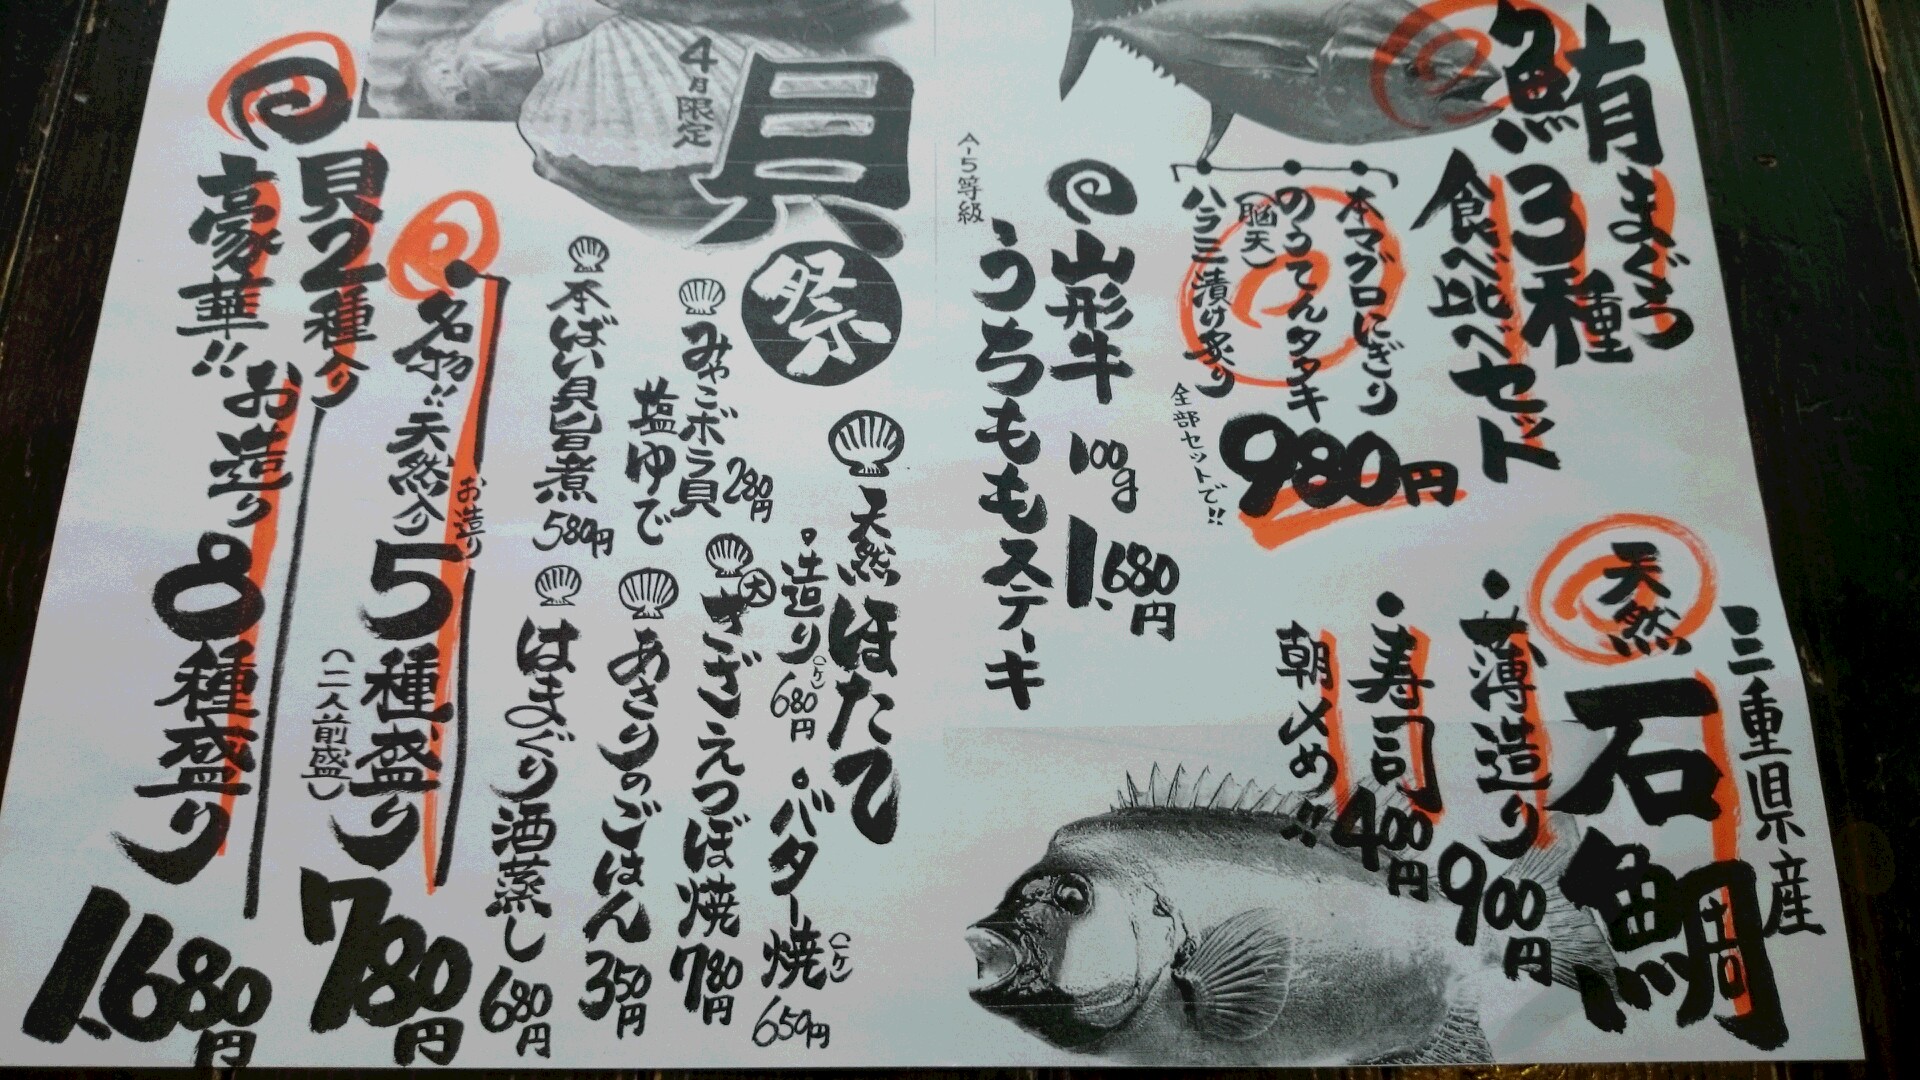 鮪まぐろ
3種
食べ比べセット
本マグロにぎり
のうてんタタキ
(脳天)
ハラミ漬け炙り
全部セットで!!
980円
三重県産
天然
石鯛
薄造り
900円
寿司
400円
朝〆め!!
山形牛 100g 1,680円
A-5等級
うちももステーキ
4月限定
貝祭
天然ほたて
造り(一ケ) 680円
バター焼(一ケ) 650円
みやこボラ貝
塩ゆで
280円
大さざえつぼ焼 780円
あさりのごはん 350円
本ばい貝旨煮 580円
はまぐり酒蒸し 680円
名物!!天然入り
お造り
5種盛り
(二人前盛)
780円
貝2種入り
豪華!!
お造り
8種盛り
1,680円